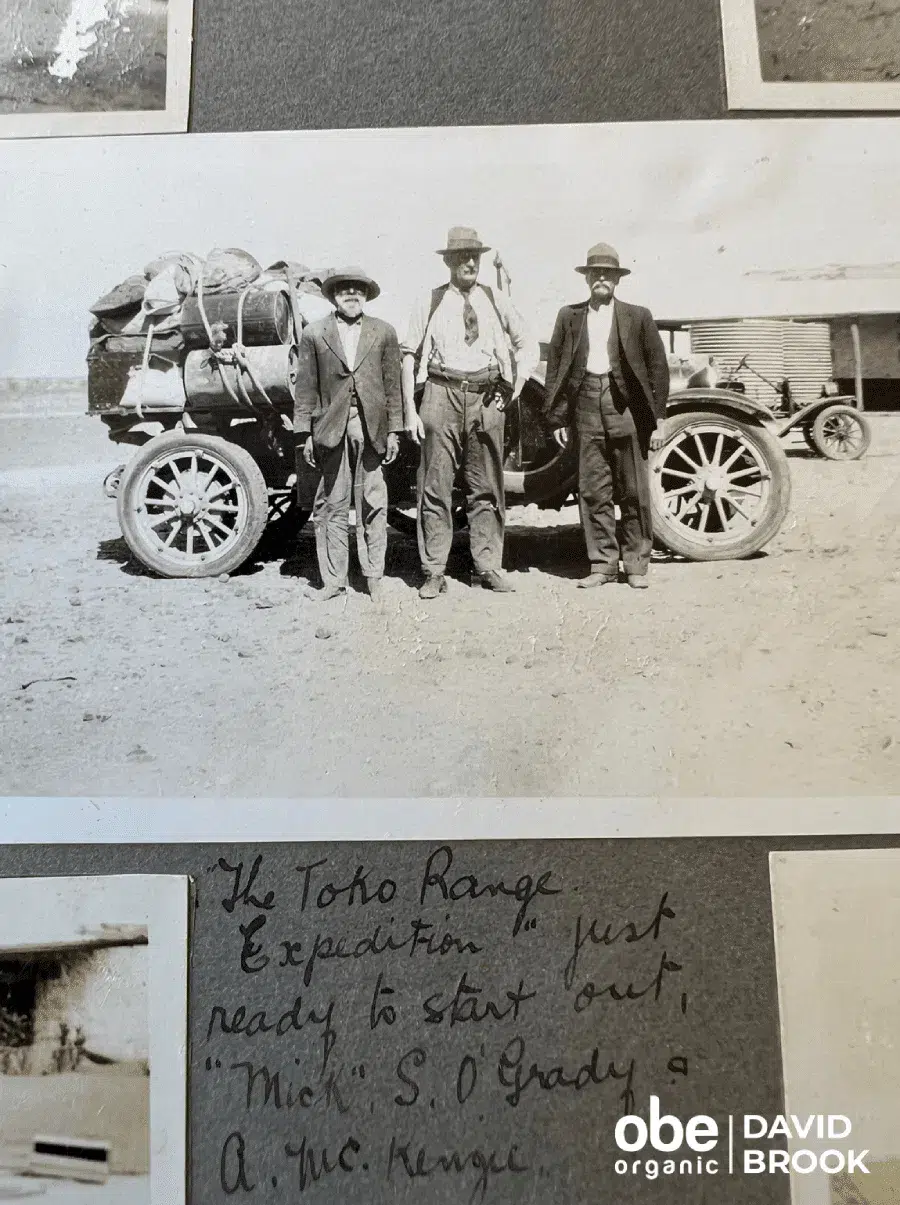 "The Toko Range
Expedition" just
ready to start out,
"Mick", S. O'Grady &
A. Mc. Kenzie.
obe
organic
DAVID
BROOK